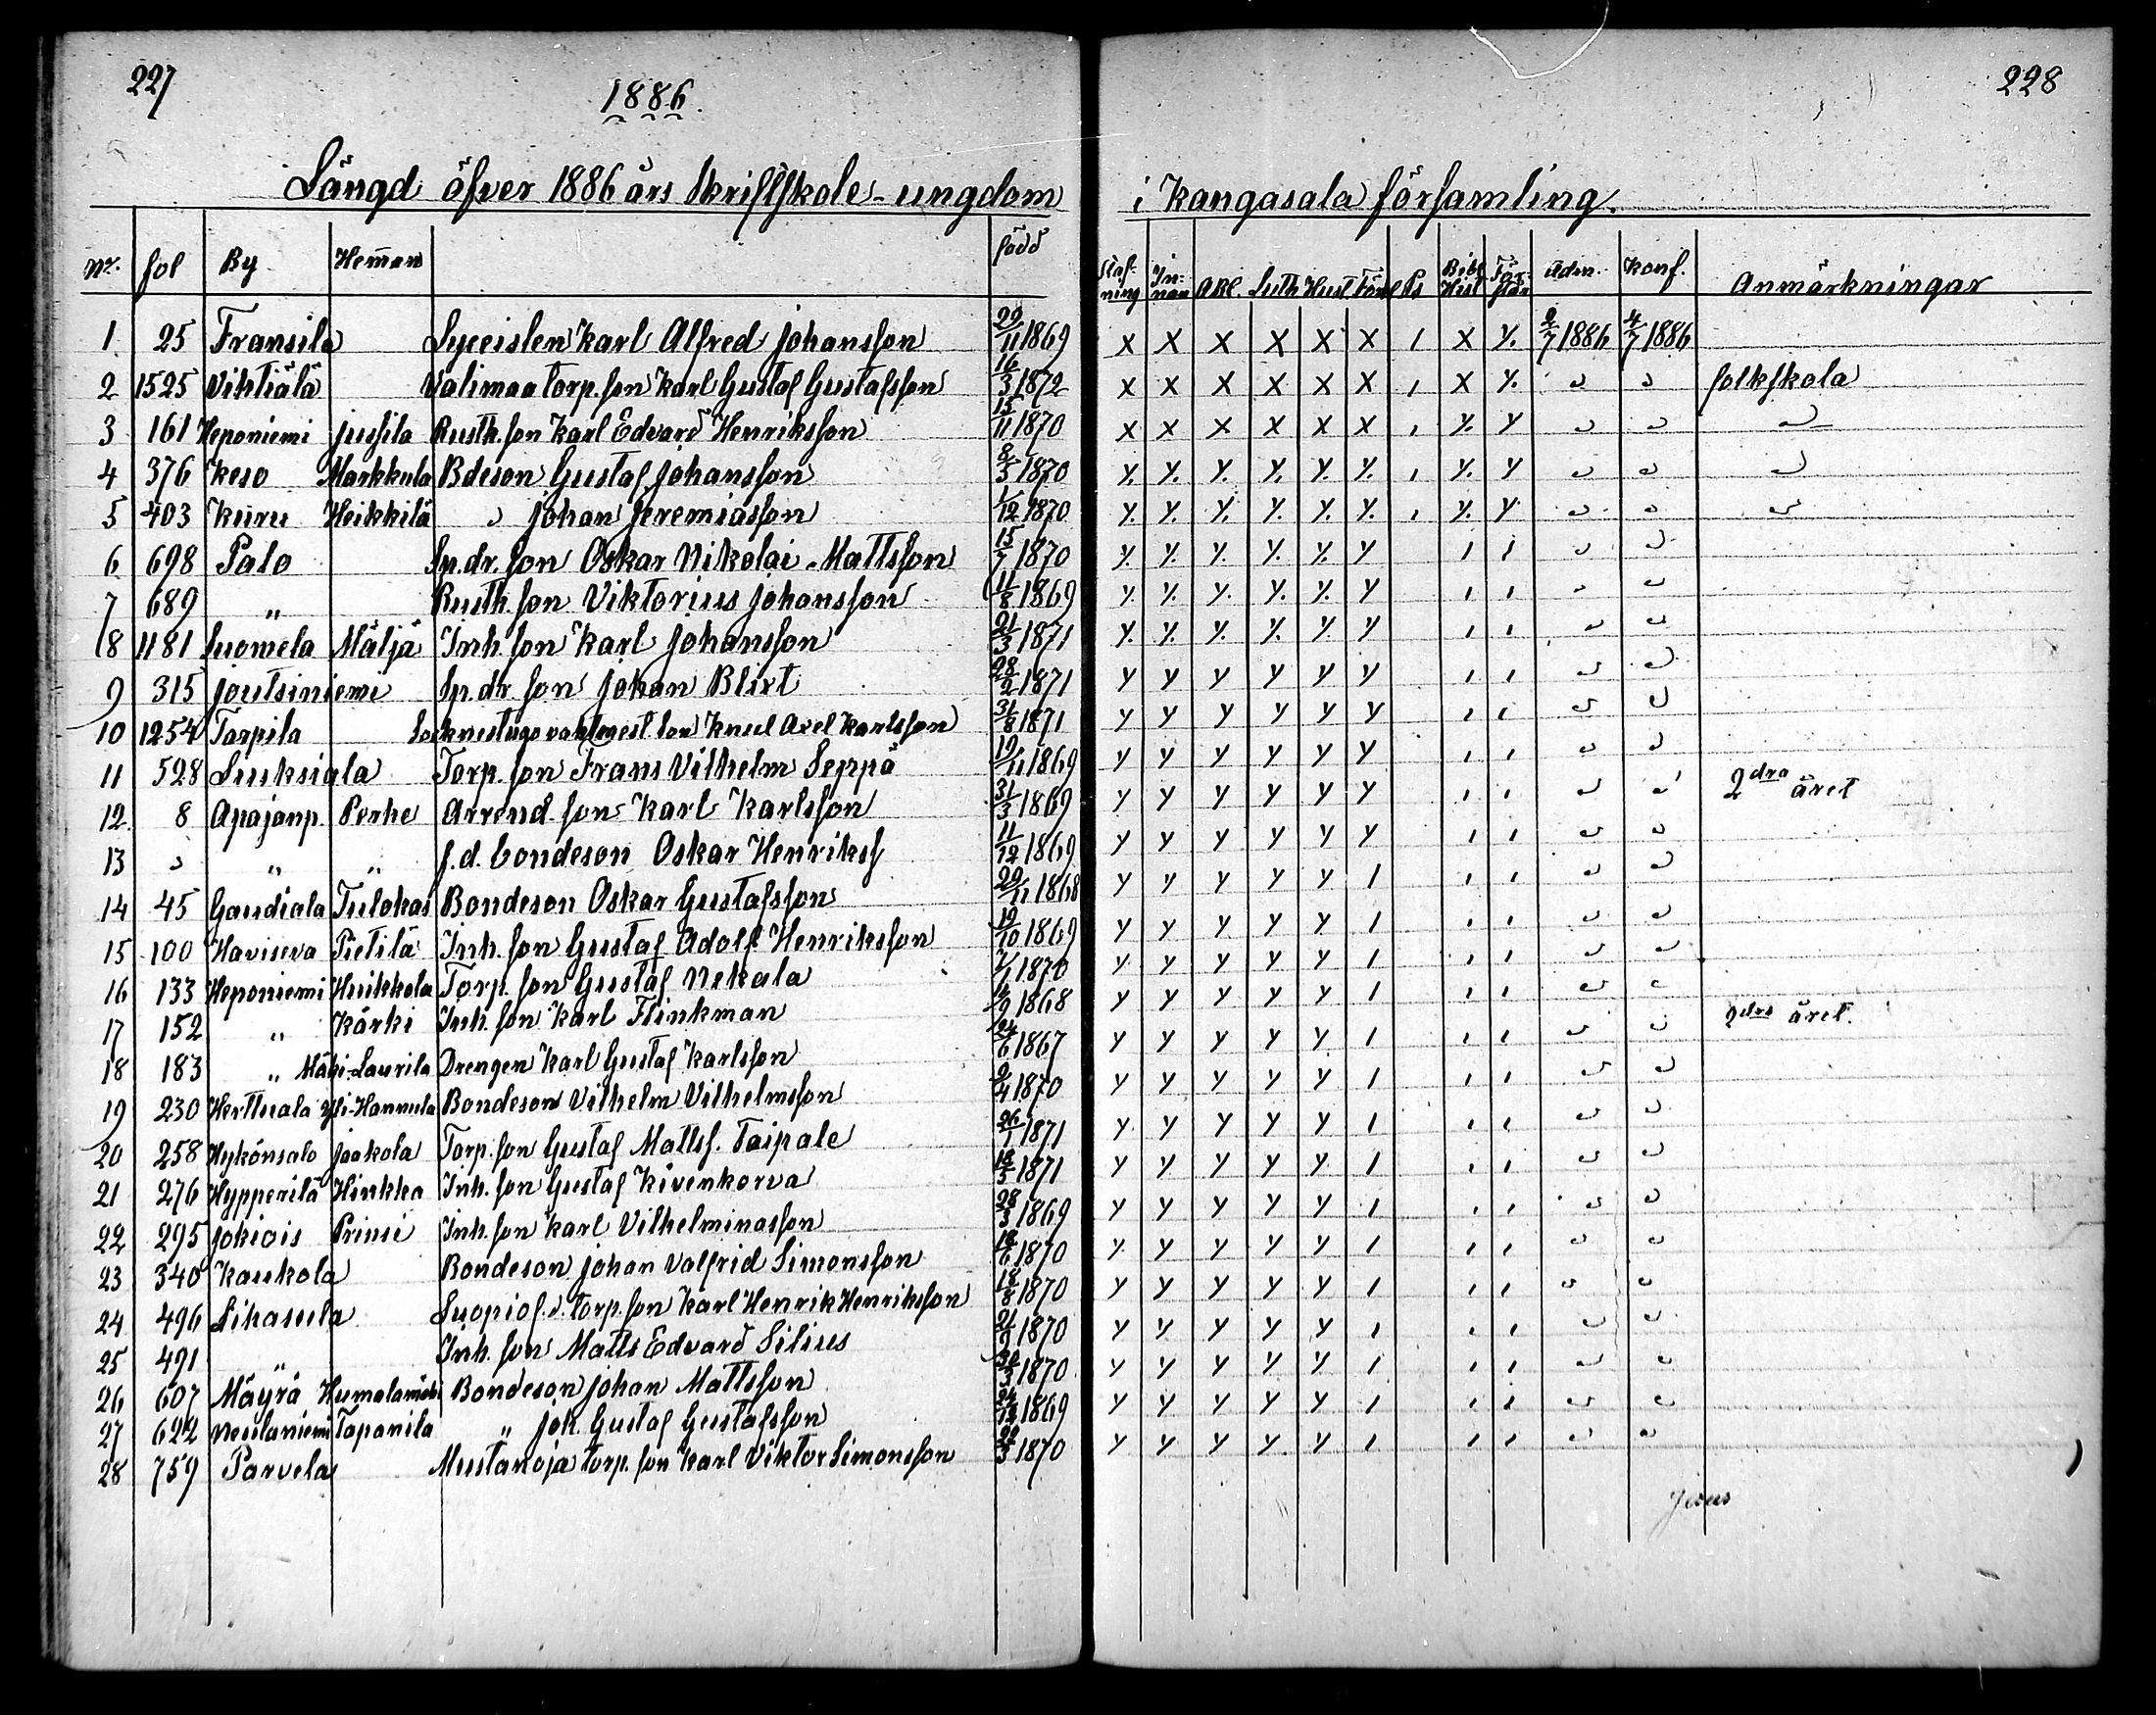 227
1886.
228
Längd öfver 1886 års Skriftskole-ungdom i Kangasala församling.
No. fol By Heman född Staf-ning In-nan ABC. Luth Hust Förkl Ps Bibl Hist För-stån Adm. Konf. Anmärkningar
1 25 Fransila Lyceisten Karl Alfred Johansson 29/11 1869 x x x x x x 1 x y. 2/7 1886 4/7 1886
2 1525 Vihtiälä Valimaa torp. son Karl Gustaf Gustafsson 16/3 1872 x x x x x x 1 x y. " " folkskola
3 161 Heponiemi Jussila Rusth. son Karl Edvard Henriksson 15/11 1870 x x x x x x 1 y. y " " "
4 376 Keso Markkula Bdeson Gustaf Johansson 8/3 1870 y. y. y. y. y. y. 1 y. y " " "
5 403 Kuru Heikkilä " Johan Jeremiasson 1/12 1870 y. y. y. y. y. y. 1 y. y " " "
6 698 Palo Sp.dr. son Oskar Nikolai Mattsson 15/7 1870 y. y. y. y. y. y 1 1 " "
7 689 " Rusth. son Viktorius Johansson 11/8 1869 y. y. y. y. y. y 1 1 " "
8 1181 Suomela Mälja Inh. son Karl Johansson 21/3 1871 y. y. y. y. y. y 1 1 " "
9 315 Joutsiniemi Sp.dr. son Johan Blixt 28/2 1871 y y y y y y 1 1 " "
10 1254 Tarpila Socknestugo vaktmest. son Knut Axel Karlsson 31/8 1871 y y y y y y 1 1 " "
11 528 Liuksiala Torp. son Frans Vilhelm Seppä 19/11 1869 y y y y y y 1 1 " "
12. 8 Apajanp. Perhe Arrend. son Karl Karlsson 31/3 1869 y y y y y y 1 1 " " 2dra året
13 " " " f.d. bondeson Oskar Henrikss 11/12 1869 y y y y y y 1 1 " "
14 45 Gaudiala Tulokas Bondeson Oskar Gustafsson 29/11 1868 y y y y y 1 1 1 " "
15 100 Haviseva Pietilä Inh. son Gustaf Adolf Henriksson 19/10 1869 y y y y y 1 1 1 " "
16 133 Heponiemi Huikkola Torp. son Gustaf Nekala 1870 y y y y y 1 1 1 " "
17 152 " Kärki Inh. son Karl Flinkman 1868 y y y y y 1 1 1 " "
18 183 " Mäki-Laurila Drengen Karl Gustaf Karlsson 24/6 1867 y y y y y 1 1 1 " " 2dra året.
19 230 Herttuala Yli-Hannula Bondeson Vilhelm Vilhelmsson 9/4 1870 y y y y y 1 1 1 " "
20 258 Hykönsalo Jaakola Torp. son Gustaf Matts. Taipale 26/1 1871 y y y y y 1 1 1 " "
21 276 Hypperilä Hinkka Inh. son Gustaf Kivenkorva 18/5 1871 y y y y y 1 1 1 " "
22 295 Jokiois Prinsi Inh. son Karl Vilhelminasson 28/3 1869 y y y y y 1 1 1 " "
23 340 Kaukola Bondeson Johan Valfrid Simonsson 18/6 1870 y y y y y 1 1 1 " "
24 496 Lihasula Luopiof. torp. son Karl Henrik Henriksson 18/8 1870 y y y y y 1 1 1 " "
25 491 " Inh. son Matts Edvard Silius 1870 y y y y y 1 1 1 " "
26 607 Mäyrä Humalamäki Bondeson Johan Mattsson 1870 y y y y y 1 1 1 " "
27 622 Neulaniemi Tapanila " Joh. Gustaf Gustafsson 1869 y y y y y 1 1 1 " "
28 759 Parvela Mustanoja torp. son Karl Viktor Simonsson 1870 y y y y y 1 1 1 " "